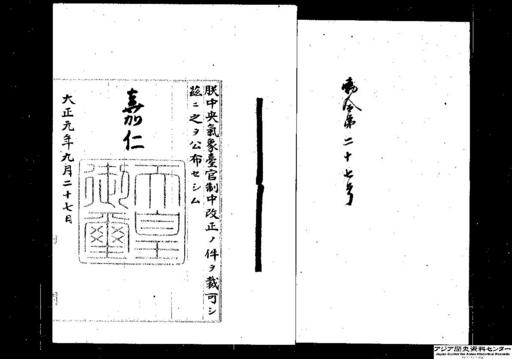 勅令第二十七号
朕中央氣象臺官制中改正ノ件ヲ裁可シ
茲ニ之ヲ公布セシム
嘉仁
天皇御璽
大正元年九月二十七日
アジア歴史資料センター
Japan Center for Asian Historical Records